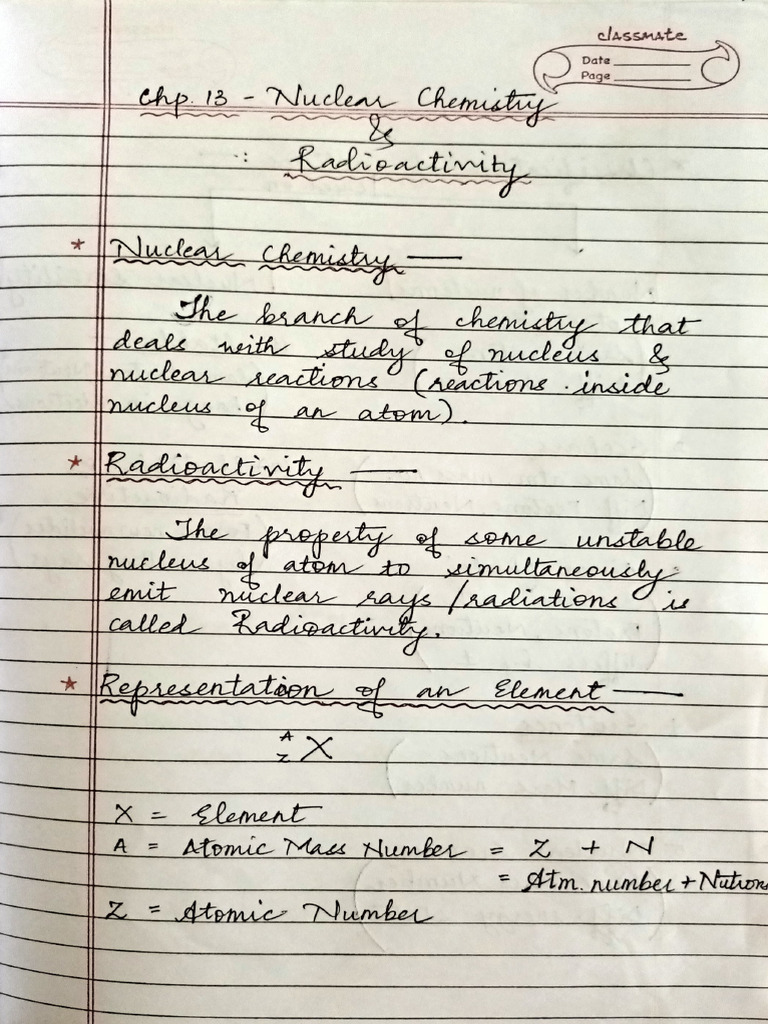 classmate
Date
Page
Chp. 13 - Nuclear Chemistry
&
Radioactivity
* Nuclear Chemistry —
The branch of chemistry that
deals with study of nucleus &
nuclear reactions (reactions inside
nucleus of an atom).
* Radioactivity —
The property of some unstable
nucleus of atom to simultaneously
emit nuclear rays/radiations is
called Radioactivity.
* Representation of an Element —
A
Z X
X = Element
A = Atomic Mass Number = Z + N
= Atm. number + Nutrons
Z = Atomic Number